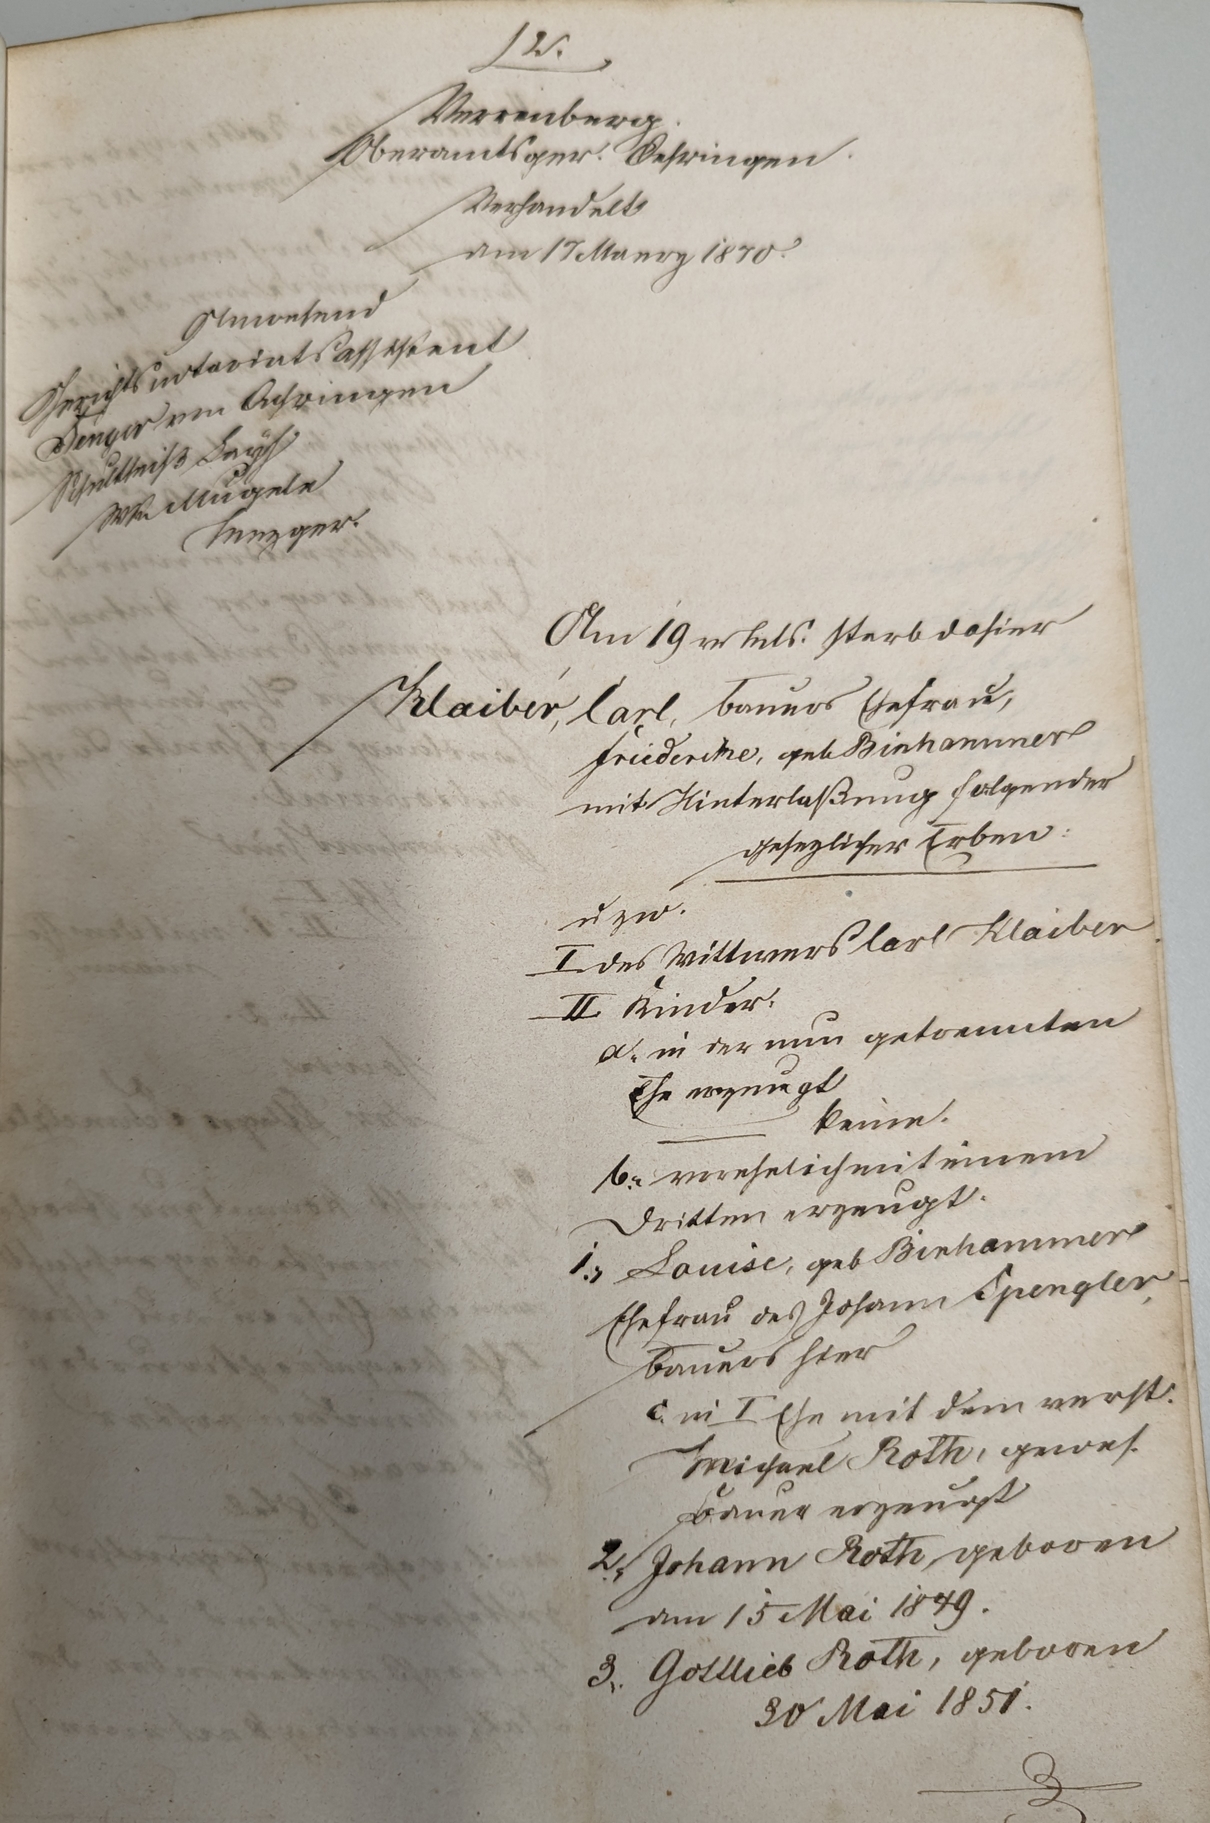 12.
Verrenberg.
Oberamtsger. Oehringen.
Verhandelt
am 17 Maerz 1870.
Anwesend
Gerichtsnotariatsassistent
von Oehringen
Schultheiß
Mugele
Am 19 v. Mts. starb dahier
Klaiber, Carl, Bauers Ehefrau,
Friedericke, geb Binhammer
mit Hinterlaßung folgender
gesezlicher Erben:
u zw.
I. des Wittwers Carl Klaiber
II Kinder:
a. in der nun getrennten
Ehe erzeugt
keine.
b. vorehelich mit einem
Dritten erzeugt.
1. Louise, geb Binhammer
Ehefrau des Johann Spengler,
Bauers hier
c. in I Ehe mit dem verst.
Michael Roth, gewes.
Bauer erzeugt
2. Johann Roth, geboren
am 15 Mai 1849.
3. Gottlieb Roth, geboren
30 Mai 1851.
3